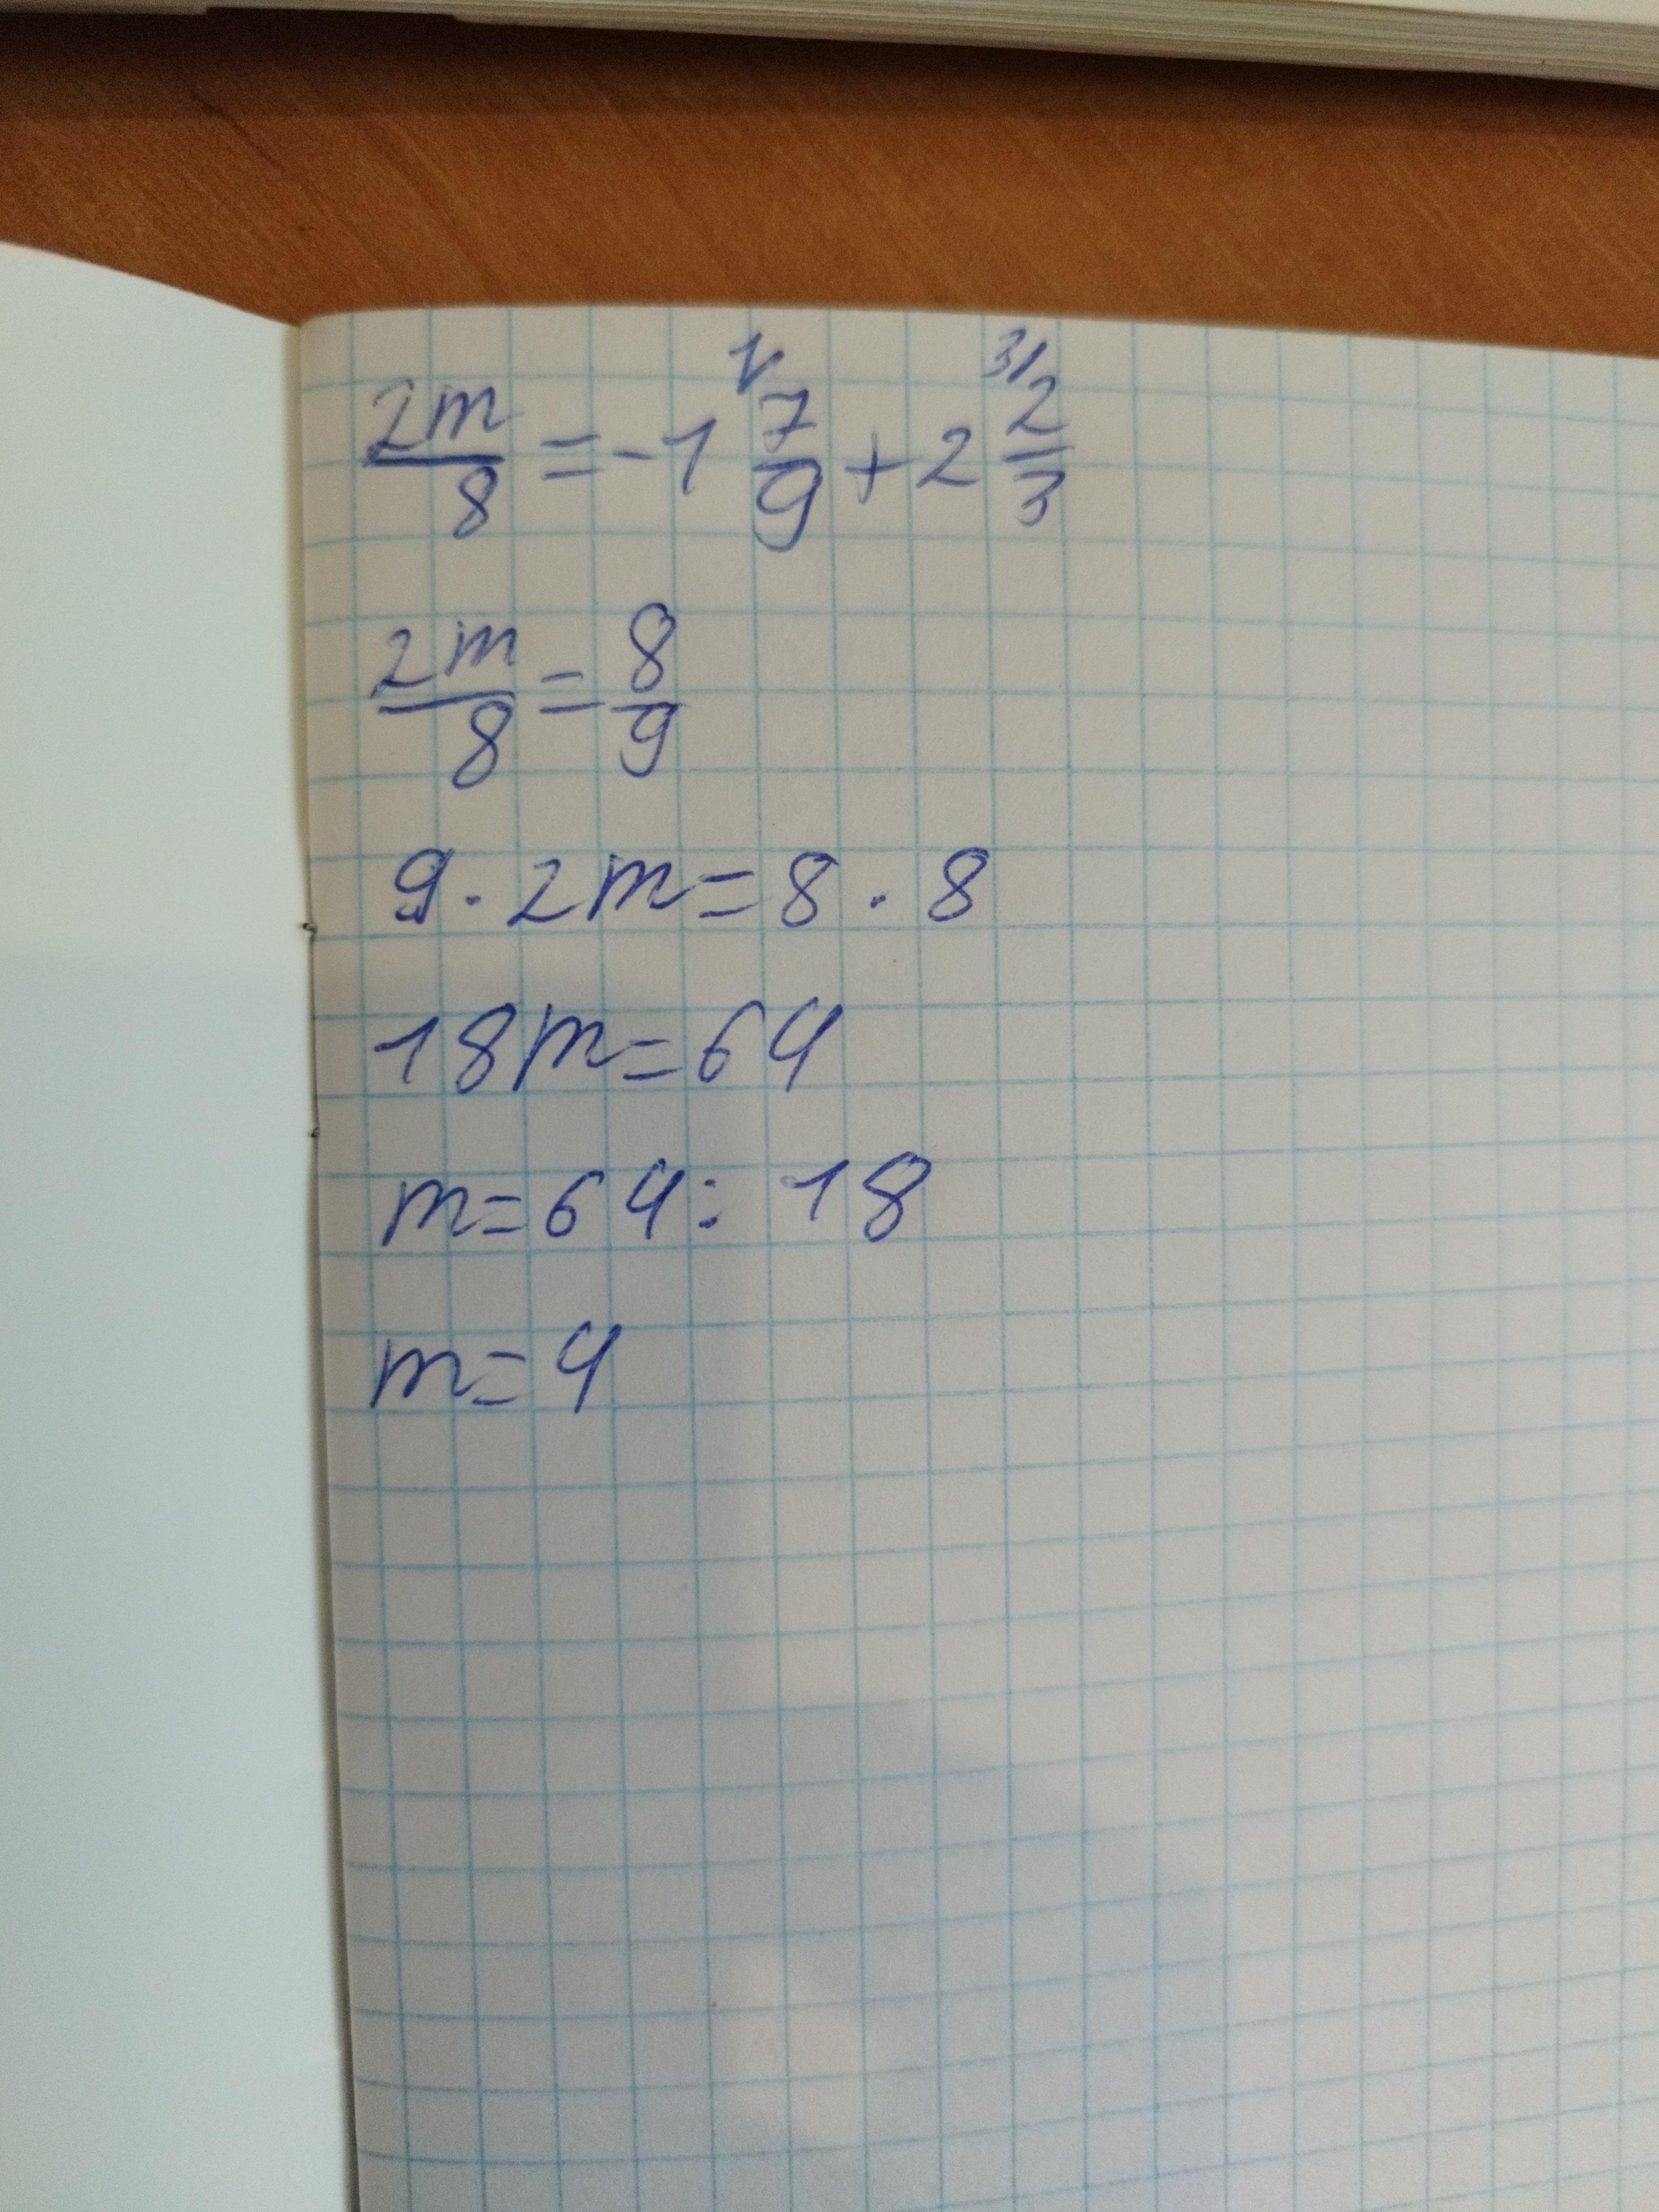 2m/8 = -1 1/ 7/9 + 2 3/ 2/3
2m/8 = 8/9
9 · 2m = 8 · 8
18m = 64
m = 64 : 18
m = 4